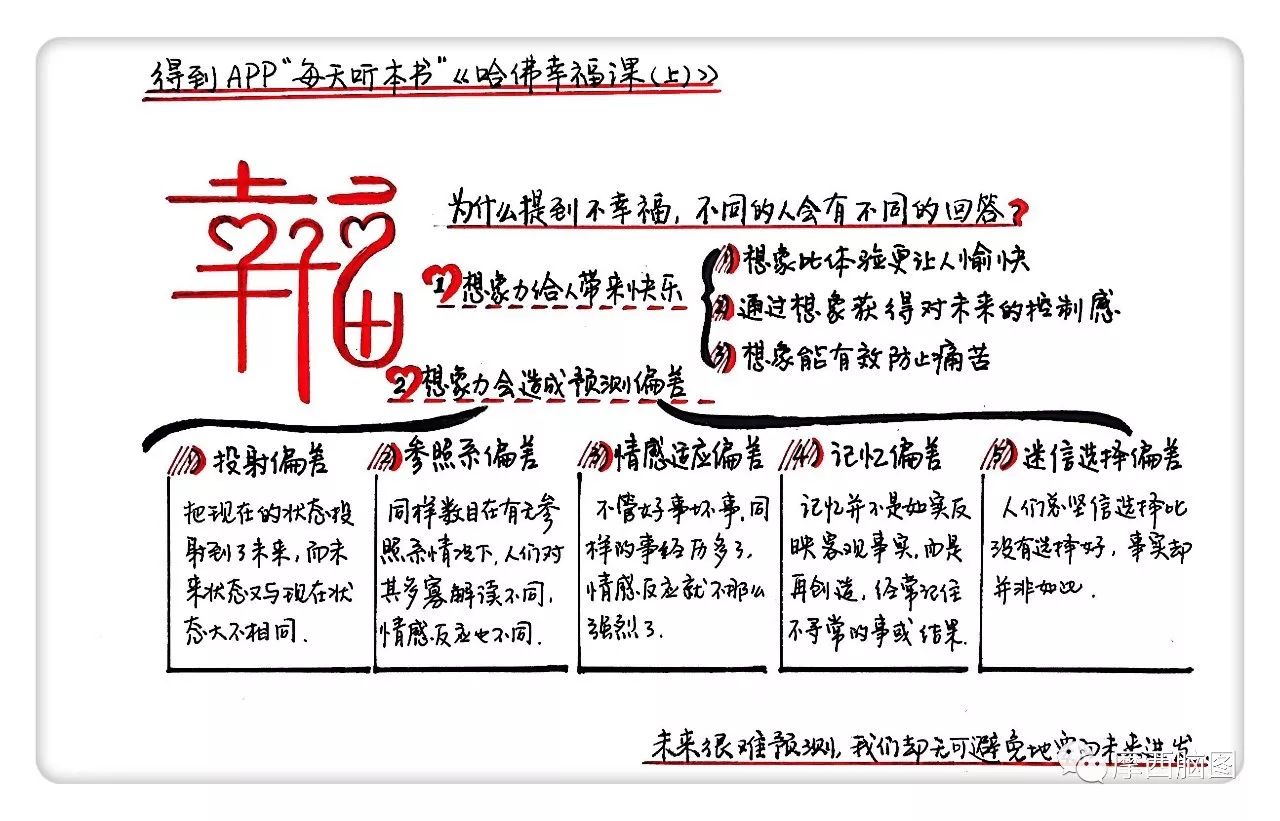 得到APP“每天听本书”《哈佛幸福课(上)》
幸福
为什么提到不幸福,不同的人会有不同的回答?
1 想象力给人带来快乐
1) 想象比体验更让人愉快
2) 通过想象获得对未来的控制感
3) 想象能有效防止痛苦
2 想象力会造成预测偏差
1) 投射偏差
把现在的状态投
射到了未来,而未
来状态又与现在状
态大不相同.
2) 参照系偏差
同样数目在有无参
照系情况下,人们对
其多寡解读不同,
情感反应也不同.
3) 情感适应偏差
不管好事坏事,同
样的事经历多了,
情感反应就不那么
强烈了.
4) 记忆偏差
记忆并不是如实反
映客观事实,而是
再创造,经常记住
不寻常的事或结果.
5) 迷信选择偏差
人们总坚信选择比
没有选择好,事实却
并非如此.
未来很难预测,我们却无可避免地要向未来进发.
摩西脑图